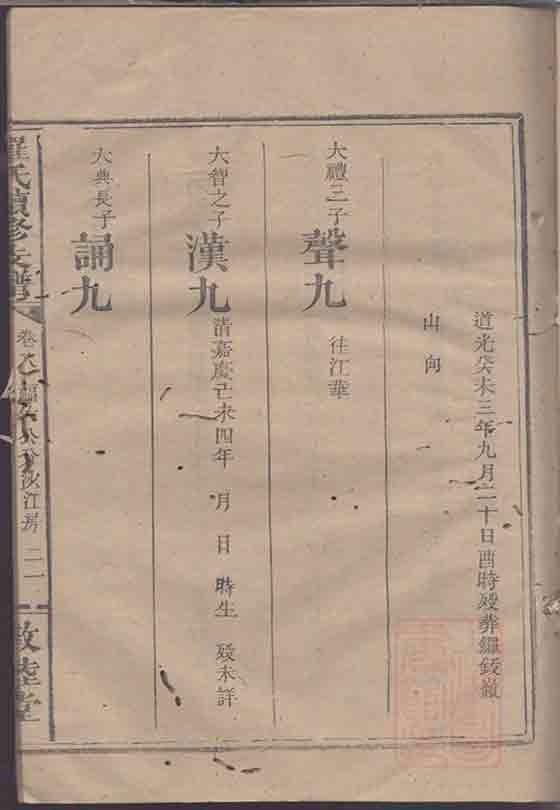 道光癸未三年九月二十日酉時歿葬鑼鈸嚴
山向
大禮二子
聲九
往江華
大智之子
漢九
清嘉慶己未四年 月 日 時生 歿未詳
大典長子
誦九
羅氏續修支譜
卷
江房
二一
敦陸堂